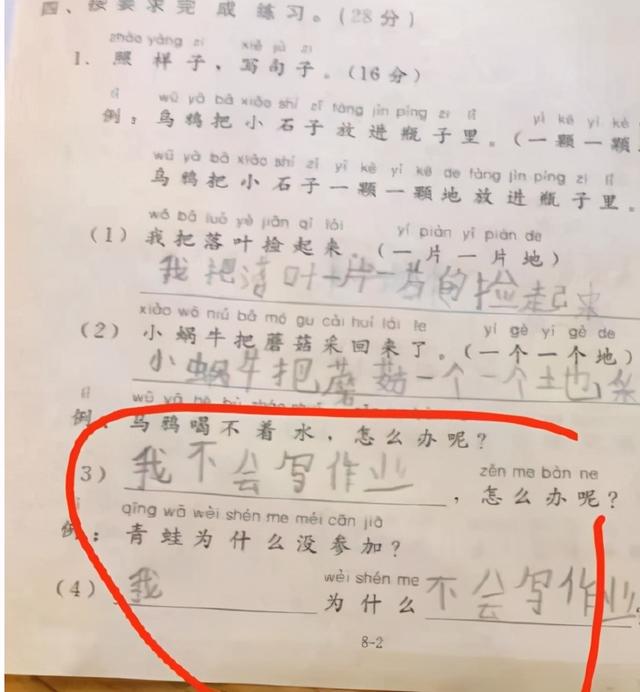 四、按要求完成练习。(28分)
zhào yàng zi xiě jù zi
1. 照样子，写句子。(16分)
lì wū yā bǎ xiǎo shí zǐ fàng jìn píng zi lǐ yì kē yì kē
例：乌鸦把小石子放进瓶子里。(一颗一颗
wū yā bǎ xiǎo shí zǐ yì kē yì kē de fàng jìn píng zi lǐ
乌鸦把小石子一颗一颗地放进瓶子里。
wǒ bǎ luò yè jiǎn qǐ lái yí piàn yí piàn de
(1) 我把落叶捡起来 (一片一片地)
我把落叶一片一片的捡起来
xiǎo wō niú bǎ mó gu cǎi huí lái le yí gè yí gè de
(2) 小蜗牛把蘑菇采回来了。(一个一个地)
小蜗牛把蘑菇一个一个土也
lì wū yā hē bù
例：乌鸦喝不着水，怎么办呢？
zěn me bàn ne
3) 我不会写作业，怎么办呢？
qīng wā wèi shén me méi cān jiā
例：青蛙为什么没参加？
wèi shén me
(4) 我为什么不会写作业
8-2